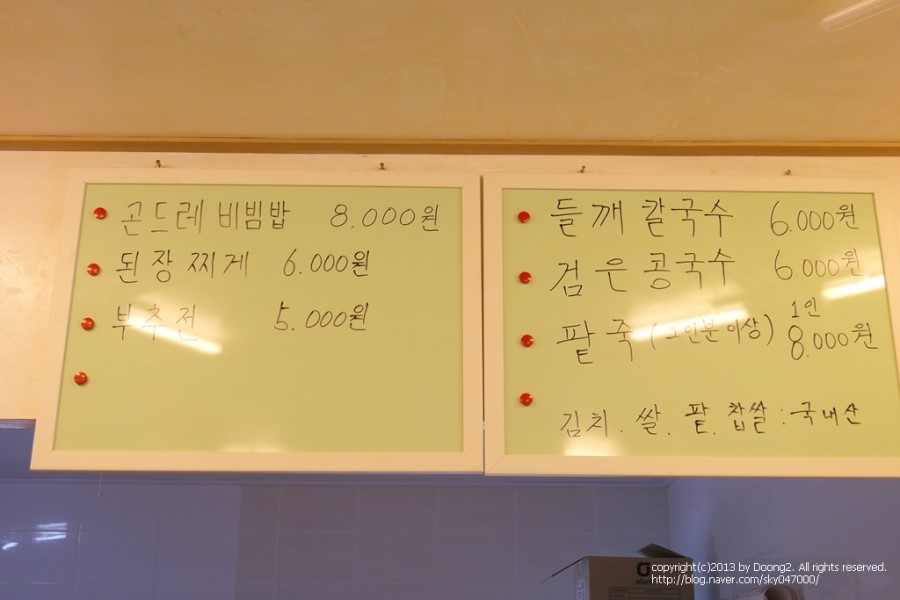 곤드레 비빔밥 8.000원
된장찌게 6.000원
부추전 5.000원
들깨 칼국수 6.000원
검은 콩국수 6.000원
팥죽 (2인분 이상) 1인 8.000원
김치. 쌀. 팥. 찹쌀 : 국내산
copyright(c)2013 by Doong2. All rights reserved.
http://blog.naver.com/sky047000/